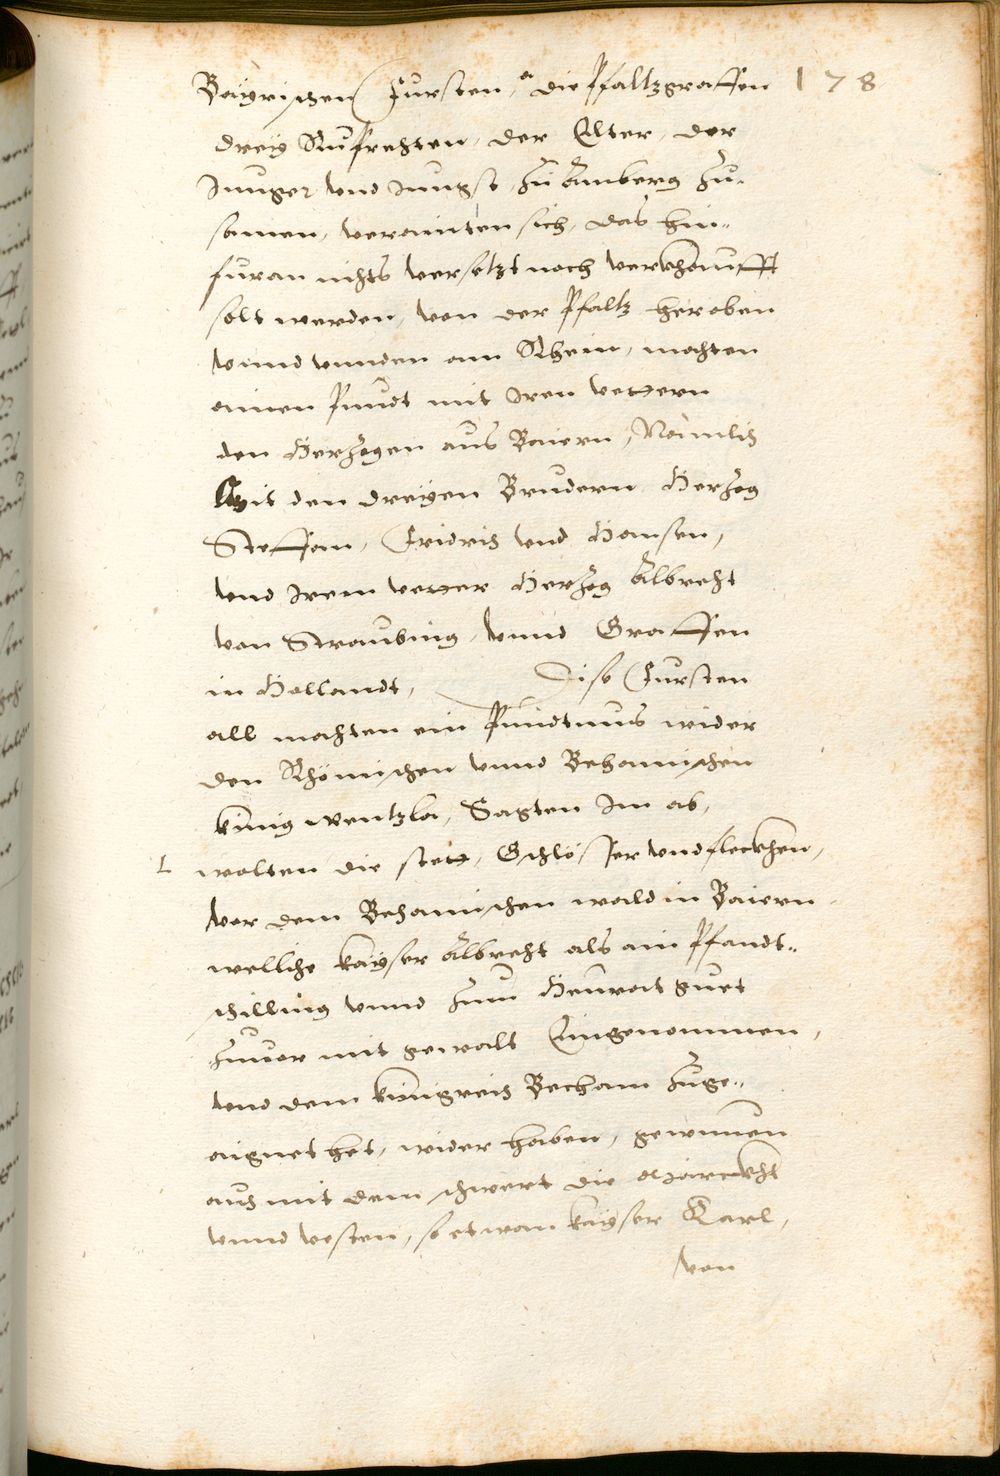 Bayrischen Fursten, die Pfaltzgraffen 178
drey Ruprechten, der Elter, der
Junger vnd Jungst, zu Amberg zu-
samen, verainten sich, das hin-
furan nichts versetzt noch verkhaufft
solt werden, von der Pfaltz heroben
vnnd vnnden am Rhein, machten
ainen Pundt mit Iren vettern
den Hertzogen aus Baiern, Nemlich
Mit den dreyen Brudern Hertzog
Steffan, Fridrich vnd Hansen,
vnd Irem vetter Hertzog Albrecht
von Straubing, vnnd Graffen
in Hollandt, Dise Fursten
all machten ein Pundtnus wider
den Rhömischen vnnd Behamischen
kunig Wentzla, Sagten Im ab,
L wolten die stett, Gschlösser vnd fleckhen,
vor dem Behamischen wald in Baiern
welliche kayser Albrecht als ain Pfandt-
schilling vnnd zum Heurat guet
zuuor mit gewalt Eingenommen,
vnd dem kunigreich Becham zuge-
aignet het, wider haben, gewunnen
auch mit dem schwert die Märckht
vnnd vesten, so etwan kayser Karl,
von